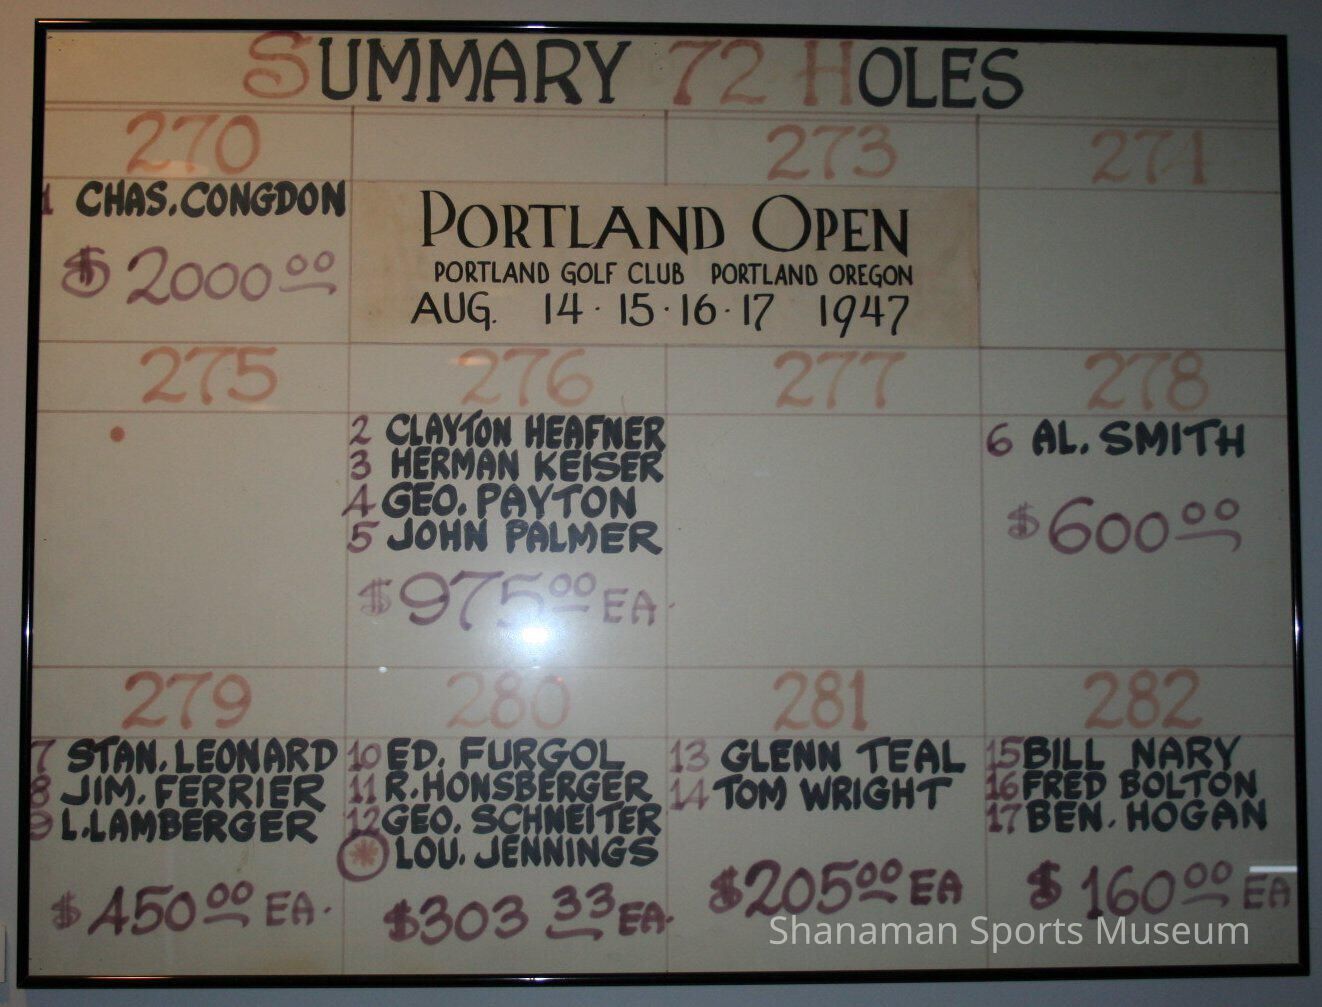 SUMMARY 72 HOLES
270
1 CHAS. CONGDON
$2000.00
273
274
PORTLAND OPEN
PORTLAND GOLF CLUB PORTLAND OREGON
AUG. 14·15·16·17 1947
275
276
2 CLAYTON HEAFNER
3 HERMAN KEISER
4 GEO. PAYTON
5 JOHN PALMER
$975.00 EA.
277
278
6 AL. SMITH
$600.00
279
7 STAN. LEONARD
8 JIM. FERRIER
9 L. LAMBERGER
$450.00 EA.
280
10 ED. FURGOL
11 R. HONSBERGER
12 GEO. SCHNEITER
* LOU. JENNINGS
$303.33 EA.
281
13 GLENN TEAL
14 TOM WRIGHT
$205.00 EA
282
15 BILL NARY
16 FRED BOLTON
17 BEN. HOGAN
$160.00 EA
Shanaman Sports Museum